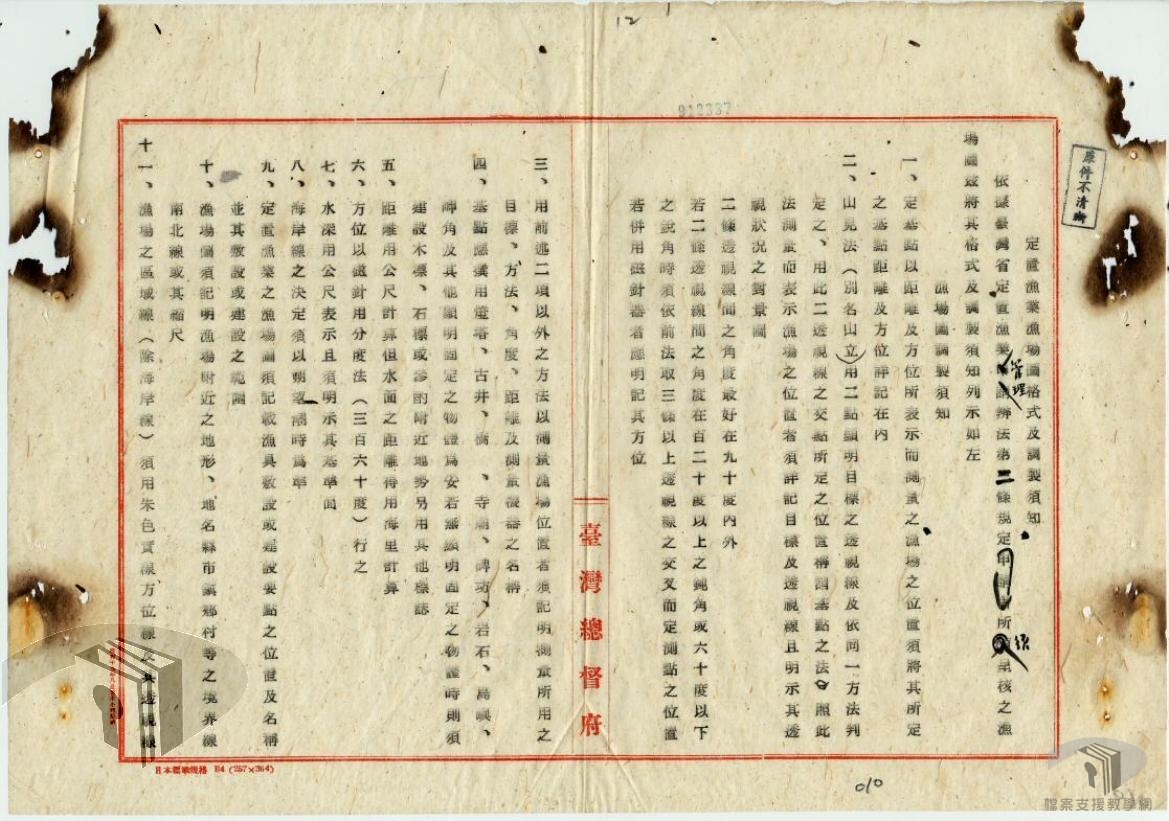 12
912337
原件不清晰
定置漁業漁場圖格式及調製須知
依據臺灣省定置漁業管理辦法第二條規定申請書所核之漁
場圖茲將其格式及調製須知列示如左
漁場圖調製須知
一、定基點以距離及方位所表示而測量之漁場之位置須將其所定
之基點距離及方位詳記在內
二、山見法(別名山立)用二點顯明目標之透視線及依同一方法判
定之、用此二透視線之交點所定之位置稱謂基點之法。照此
法測量而表示漁場之位置者須詳記目標及透視線且明示其透
視狀況之對景圖
二條透視線間之角度最好在九十度內外
若二條透視線間之角度在百二十度以上之鈍角或六十度以下
之銳角時須依前法取三條以上透視線之交叉而定測點之位置
若併用磁針器者應明記其方位
臺灣總督府
三、用前述二項以外之方法以測量漁場位置者須記明測量所用之
目標、方法、角度、距離及測量機器之名稱
四、基點應選用燈塔、古井、橋、寺廟、岩石、島嶼、
岬角及其他顯明固定之物體為妥若無顯明固定之物體時則須
建設木標、石標或參酌附近地勢另用其他標誌
五、距離用公尺計算但水面之距離得用海里計算
六、方位以磁針用分度法(三百六十度)行之
七、水深用公尺表示且須明示其基準面
八、海岸線之決定須以朔望滿時為準
九、定置漁業之漁場圖須記載漁具敷設或建設要點之位置及名稱
並其敷設或建設之範圍
十、漁場圖須記明漁場附近之地形、地名縣市鎮鄉村等之境界線
南北線或其縮尺
十一、漁場之區域線(除海岸線)須用朱色實線方位線及其透視線
日本標準規格 B4 (257×364)
010
檔案支援教學網